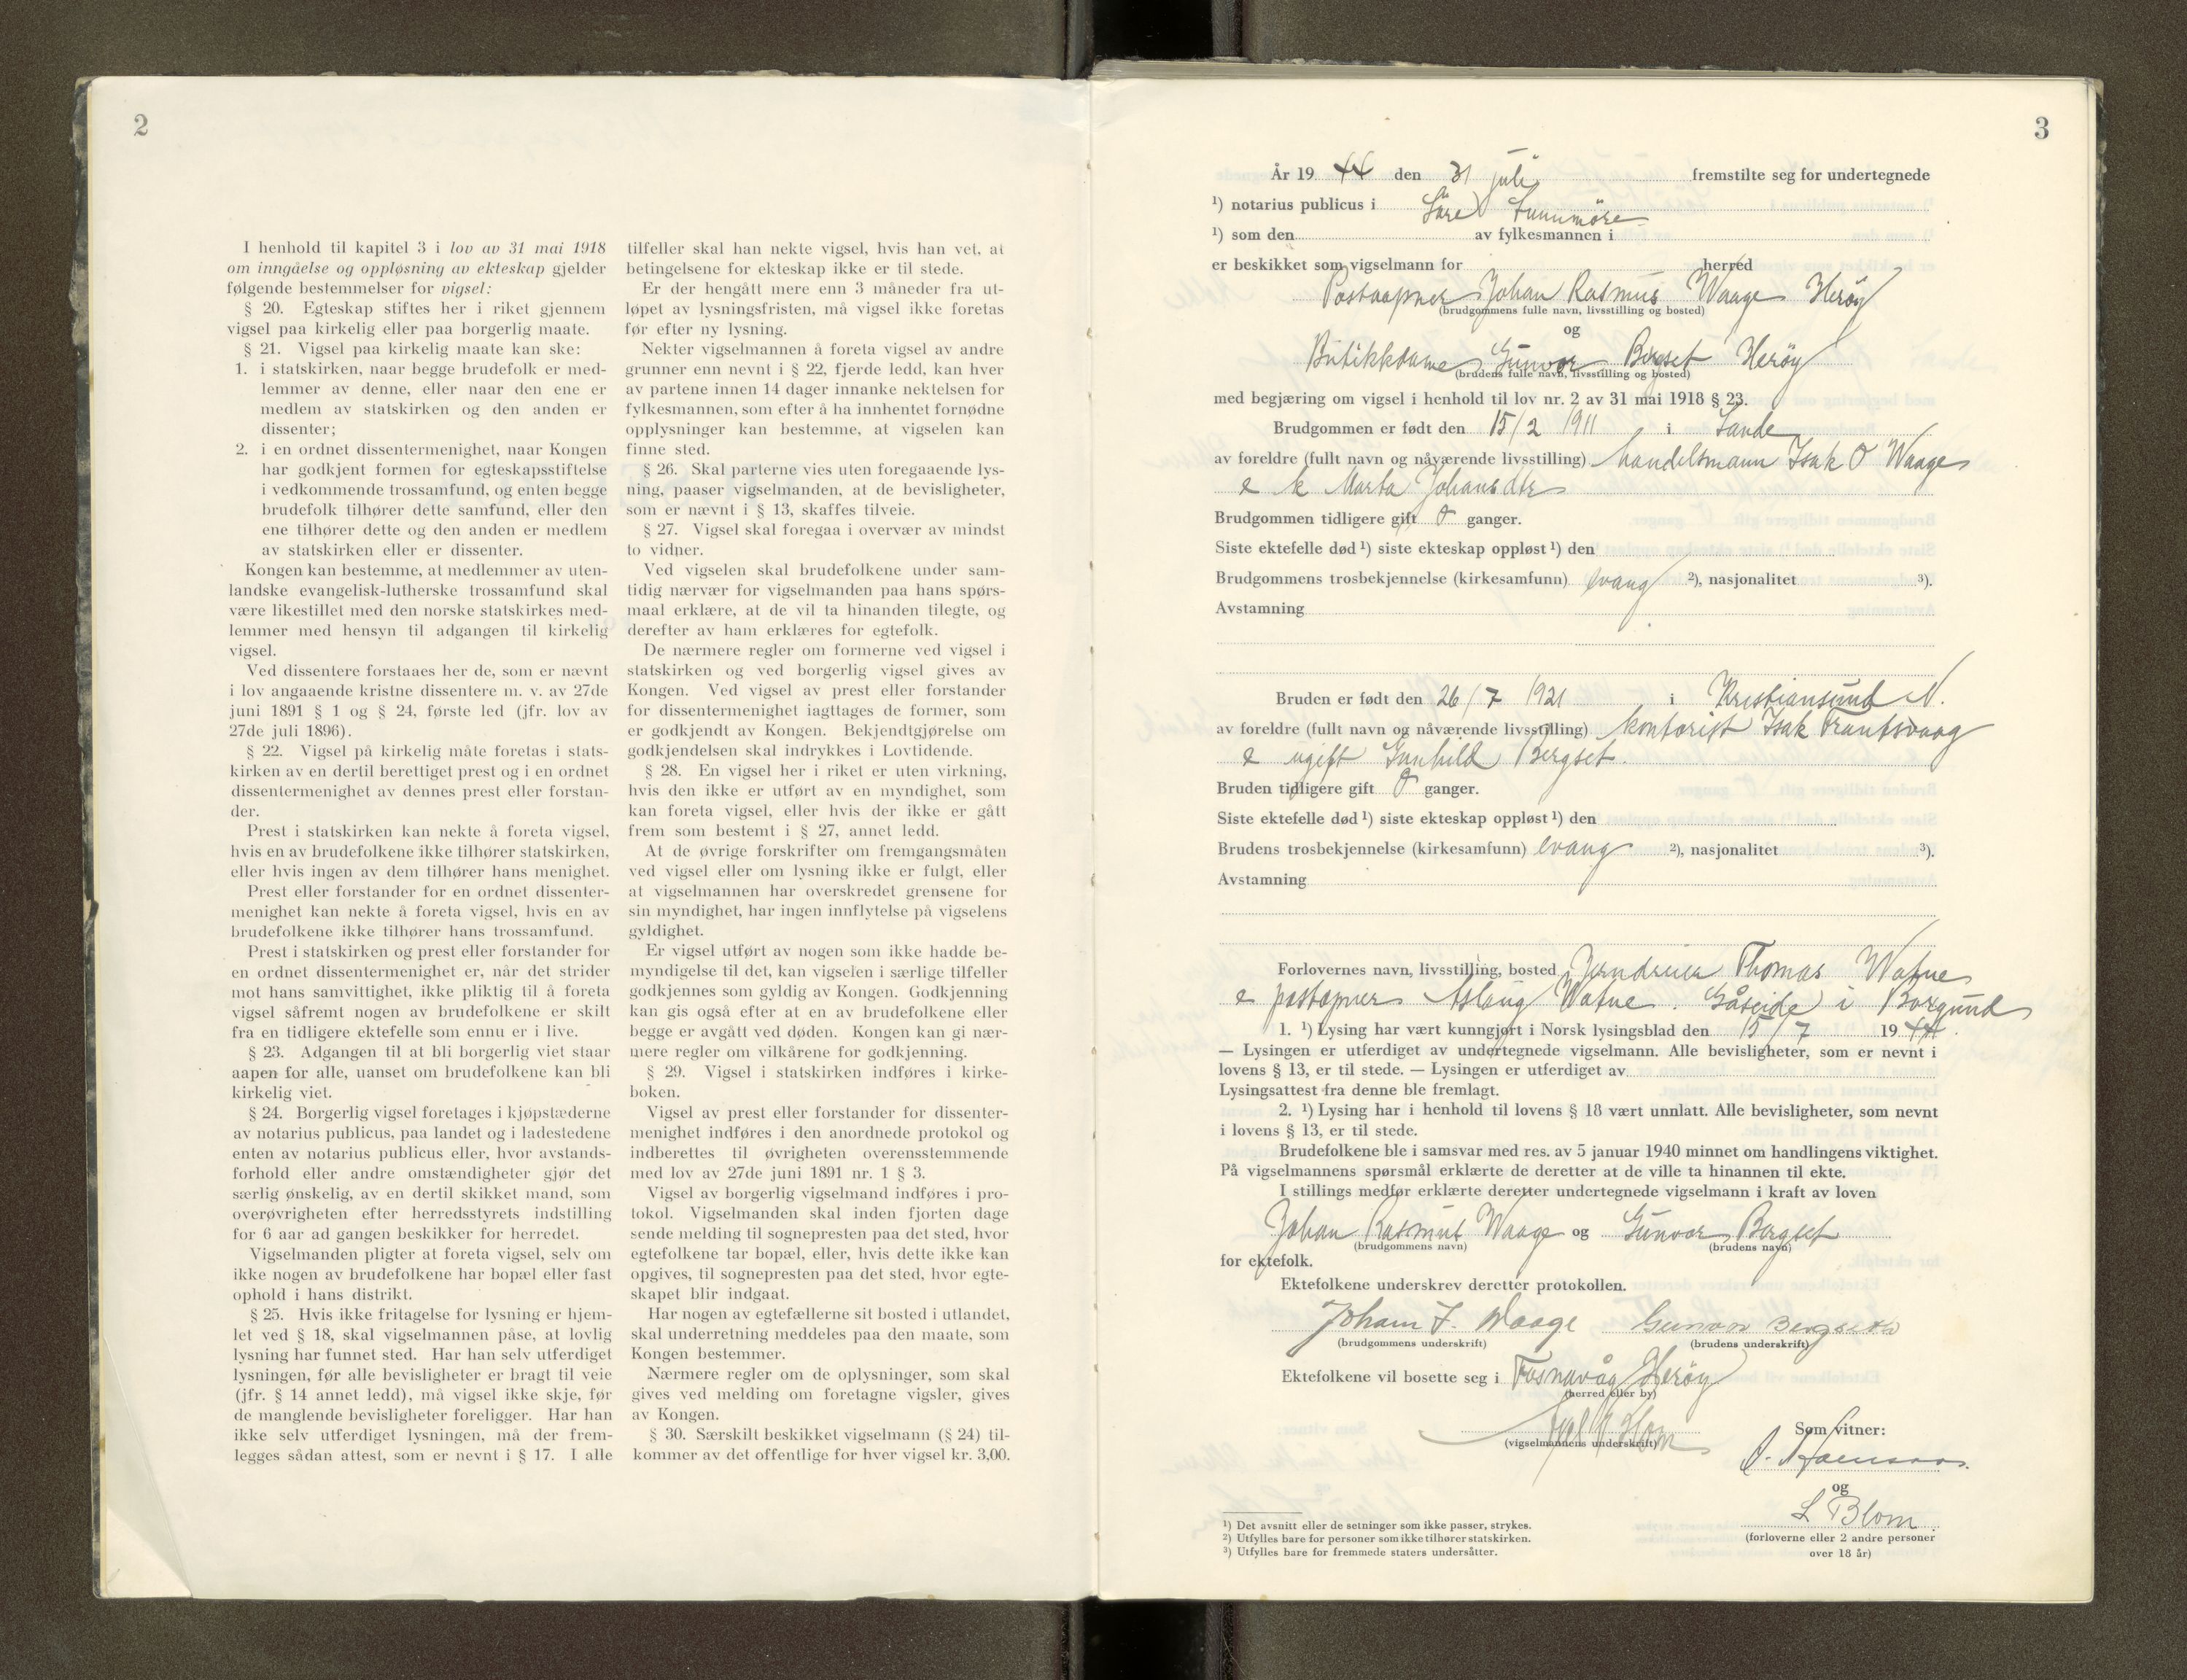 2
I henhold til kapitel 3 i lov av 31 mai 1918
om inngåelse og oppløsning av ekteskap gjelder
følgende bestemmelser for vigsel:
§ 20. Egteskap stiftes her i riket gjennem
vigsel paa kirkelig eller paa borgerlig maate.
§ 21. Vigsel paa kirkelig maate kan ske:
1. i statskirken, naar begge brudefolk er med-
lemmer av denne, eller naar den ene er
medlem av statskirken og den anden er
dissenter;
2. i en ordnet dissentermenighet, naar Kongen
har godkjent formen for egteskapsstiftelse
i vedkommende trossamfund, og enten begge
brudefolk tilhører dette samfund, eller den
ene tilhører dette og den anden er medlem
av statskirken eller er dissenter.
Kongen kan bestemme, at medlemmer av uten-
landske evangelisk-lutherske trossamfund skal
være likestillet med den norske statskirkes med-
lemmer med hensyn til adgangen til kirkelig
vigsel.
Ved dissentere forstaaes her de, som er nævnt
i lov angaaende kristne dissentere m. v. av 27de
juni 1891 § 1 og § 24, første led (jfr. lov av
27de juli 1896).
§ 22. Vigsel på kirkelig måte foretas i stats-
kirken av en dertil berettiget prest og i en ordnet
dissentermenighet av dennes prest eller forstan-
der.
Prest i statskirken kan nekte å foreta vigsel,
hvis en av brudefolkene ikke tilhører statskirken,
eller hvis ingen av dem tilhører hans menighet.
Prest eller forstander for en ordnet dissenter-
menighet kan nekte å foreta vigsel, hvis en av
brudefolkene ikke tilhører hans trossamfund.
Prest i statskirken og prest eller forstander for
en ordnet dissentermenighet er, når det strider
mot hans samvittighet, ikke pliktig til å foreta
vigsel såfremt nogen av brudefolkene er skilt
fra en tidligere ektefelle som ennu er i live.
§ 23. Adgangen til at bli borgerlig viet staar
aapen for alle, uanset om brudefolkene kan bli
kirkelig viet.
§ 24. Borgerlig vigsel foretages i kjøpstæderne
av notarius publicus, paa landet og i ladestedene
enten av notarius publicus eller, hvor avstands-
forhold eller andre omstændigheter gjør det
særlig ønskelig, av en dertil skikket mand, som
overøvrigheten efter herredsstyrets indstilling
for 6 aar ad gangen beskikker for herredet.
Vigselmanden pligter at foreta vigsel, selv om
ikke nogen av brudefolkene har bopæl eller fast
ophold i hans distrikt.
§ 25. Hvis ikke fritagelse for lysning er hjem-
let ved § 18, skal vigselmannen påse, at lovlig
lysning har funnet sted. Har han selv utferdiget
lysningen, før alle bevisligheter er bragt til veie
(jfr. § 14 annet ledd), må vigsel ikke skje, før
de manglende bevisligheter foreligger. Har han
ikke selv utferdiget lysningen, må der frem-
legges sådan attest, som er nevnt i § 17. I alle
tilfeller skal han nekte vigsel, hvis han vet, at
betingelsene for ekteskap ikke er til stede.
Er der hengått mere enn 3 måneder fra ut-
løpet av lysningsfristen, må vigsel ikke foretas
før efter ny lysning.
Nekter vigselmannen å foreta vigsel av andre
grunner enn nevnt i § 22, fjerde ledd, kan hver
av partene innen 14 dager innanke nektelsen for
fylkesmannen, som efter å ha innhentet fornødne
opplysninger kan bestemme, at vigselen kan
finne sted.
§ 26. Skal parterne vies uten foregaaende lys-
ning, paaser vigselmanden, at de bevisligheter,
som er nævnt i § 13, skaffes tilveie.
§ 27. Vigsel skal foregaa i overvær av mindst
to vidner.
Ved vigselen skal brudefolkene under sam-
tidig nærvær for vigselmanden paa hans spørs-
maal erklære, at de vil ta hinanden tilegte, og
derefter av ham erklæres for egtefolk.
De nærmere regler om formerne ved vigsel i
statskirken og ved borgerlig vigsel gives av
Kongen. Ved vigsel av prest eller forstander
for dissentermenighet iagttages de former, som
er godkjendt av Kongen. Bekjendtgjørelse om
godkjendelsen skal indrykkes i Lovtidende.
§ 28. En vigsel her i riket er uten virkning,
hvis den ikke er utført av en myndighet, som
kan foreta vigsel, eller hvis der ikke er gått
frem som bestemt i § 27, annet ledd.
At de øvrige forskrifter om fremgangsmåten
ved vigsel eller om lysning ikke er fulgt, eller
at vigselmannen har overskredet grensene for
sin myndighet, har ingen innflytelse på vigselens
gyldighet.
Er vigsel utført av nogen som ikke hadde be-
myndigelse til det, kan vigselen i særlige tilfeller
godkjennes som gyldig av Kongen. Godkjenning
kan gis også efter at en av brudefolkene eller
begge er avgått ved døden. Kongen kan gi nær-
mere regler om vilkårene for godkjenning.
§ 29. Vigsel i statskirken indføres i kirke-
boken.
Vigsel av prest eller forstander for dissenter-
menighet indføres i den anordnede protokol og
indberettes til øvrigheten overensstemmende
med lov av 27de juni 1891 nr. 1 § 3.
Vigsel av borgerlig vigselmand indføres i pro-
tokol. Vigselmanden skal inden fjorten dage
sende melding til sognepresten paa det sted, hvor
egtefolkene tar bopæl, eller, hvis dette ikke kan
opgives, til sognepresten paa det sted, hvor egte-
skapet blir indgaat.
Har nogen av egtefællerne sit bosted i utlandet,
skal underretning meddeles paa den maate, som
Kongen bestemmer.
Nærmere regler om de oplysninger, som skal
gives ved melding om foretagne vigsler, gives
av Kongen.
§ 30. Særskilt beskikket vigselmann (§ 24) til-
kommer av det offentlige for hver vigsel kr. 3,00.
3
År 19 44 den 31 juli fremstilte seg for undertegnede
¹) notarius publicus i Søre Sunnmøre
¹) som den av fylkesmannen i
er beskikket som vigselmann for herred
Postaapner Johan Rasmus Waage Herøy
(brudgommens fulle navn, livsstilling og bosted)
og
Butikkdame Gunvor Bergset Herøy
(brudens fulle navn, livsstilling og bosted)
med begjæring om vigsel i henhold til lov nr. 2 av 31 mai 1918 § 23.
Brudgommen er født den 15/2 1911 i Sande
av foreldre (fullt navn og nåværende livsstilling) handelsmann Isak O Waage
e k Marta Johansdtr
Brudgommen tidligere gift 0 ganger.
Siste ektefelle død ¹) siste ekteskap oppløst ¹) den
Brudgommens trosbekjennelse (kirkesamfunn) evang ²), nasjonalitet ³).
Avstamning
Bruden er født den 26/7 1921 i Kristiansund N.
av foreldre (fullt navn og nåværende livsstilling) kontorist Isak Frantsvaag
e ugift Gunhild Bergset.
Bruden tidligere gift 0 ganger.
Siste ektefelle død ¹) siste ekteskap oppløst ¹) den
Brudens trosbekjennelse (kirkesamfunn) evang ²), nasjonalitet ³).
Avstamning
Forlovernes navn, livsstilling, bosted Jerndreier Thomas Watne
e postopner Aslaug Watne. Gåseide i Borgund
1. ¹) Lysing har vært kunngjort i Norsk lysingsblad den 15/7 19 44.
— Lysingen er utferdiget av undertegnede vigselmann. Alle bevisligheter, som er nevnt i
lovens § 13, er til stede. — Lysingen er utferdiget av
Lysingsattest fra denne ble fremlagt.
2. ¹) Lysing har i henhold til lovens § 18 vært unnlatt. Alle bevisligheter, som nevnt
i lovens § 13, er til stede.
Brudefolkene ble i samsvar med res. av 5 januar 1940 minnet om handlingens viktighet.
På vigselmannens spørsmål erklærte de deretter at de ville ta hinannen til ekte.
I stillings medfør erklærte deretter undertegnede vigselmann i kraft av loven
Johan Rasmus Waage og Gunvor Bergset
(brudgommens navn) (brudens navn)
for ektefolk.
Ektefolkene underskrev deretter protokollen.
Johan I. Waage Gunvor Bergseth
(brudgommens underskrift) (brudens underskrift)
Ektefolkene vil bosette seg i Fosnavåg Herøy
(herred eller by)
(vigselmannens underskrift)
Som vitner:
og
L Blom
(forloverne eller 2 andre personer
over 18 år)
¹) Det avsnitt eller de setninger som ikke passer, strykes.
²) Utfylles bare for personer som ikke tilhører statskirken.
³) Utfylles bare for fremmede staters undersåtter.